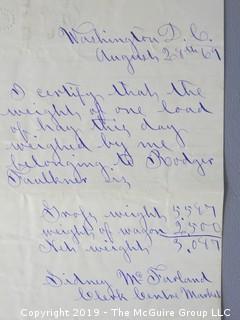 Washington D. C.
August 27th 69
I certify that the
weight of one load
of hay this day
weighed by me
belonging to Rodger
Faulkner is
Gross weight, 5,597
weight of wagon 2500
Net weight, 3,097
Sidney McFarland
Clerk Centre Market
Copyright 2019 - The McGuire Group LLC